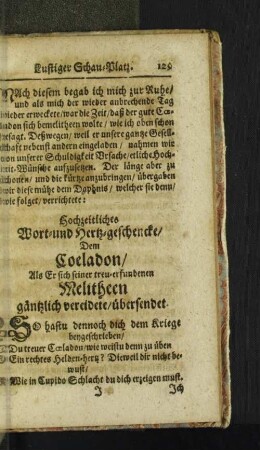 Lustiger Schau-Platz. 129
NAch diesem begab ich mich zur Ruhe/
und als mich der wieder anbrechende Tag
wieder erweckete/ war die Zeit/ daß der gute Cœ-
ladon sich bemelitheen wolte/ wie ich oben schon
gesagt. Deßwegen/ weil er unsere gantze Gesell-
schafft nebenst andern eingeladen/ nahmen wir
von unserer Schuldigkeit Ursache/ etliche Hoch-
zeit-Wünsche aufzusetzen. Der länge aber zu
schonen/ und die kürtze anzubringen/ übergaben
wir diese mühe dem Daphnis/ welcher sie denn/
wie folget/ verrichtete:
Hochzeitliches
Wort-und Hertz-geschencke/
Dem
Coeladon/
Als Er sich seiner treu-erfundenen
Melitheen
gäntzlich vereidete/ übersendet.
SO hastu dennoch dich dem Kriege
beygeschrieben/
Du treuer Cœladon/ wie weistu denn zu üben
Ein rechtes Helden-hertz? Dieweil dir nicht be-
wust/
Wie in Cupido Schlacht du dich erzeigen must.
J Jch